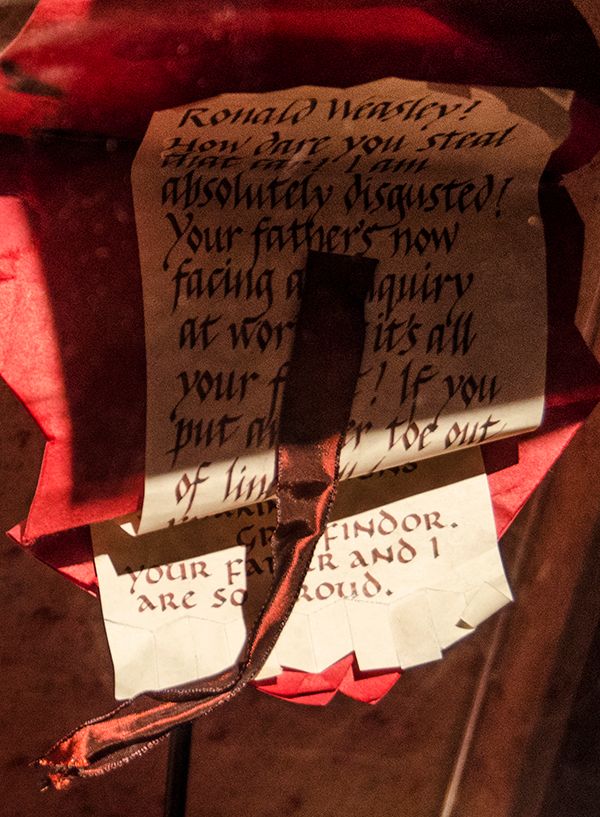 Ronald Weasley!
How dare you steal
that car! I am
absolutely disgusted!
Your father's now
facing
at it's all
your ! If you
put toe out
of
GRYFFINDOR.
YOUR FATHER AND I
ARE SO PROUD.